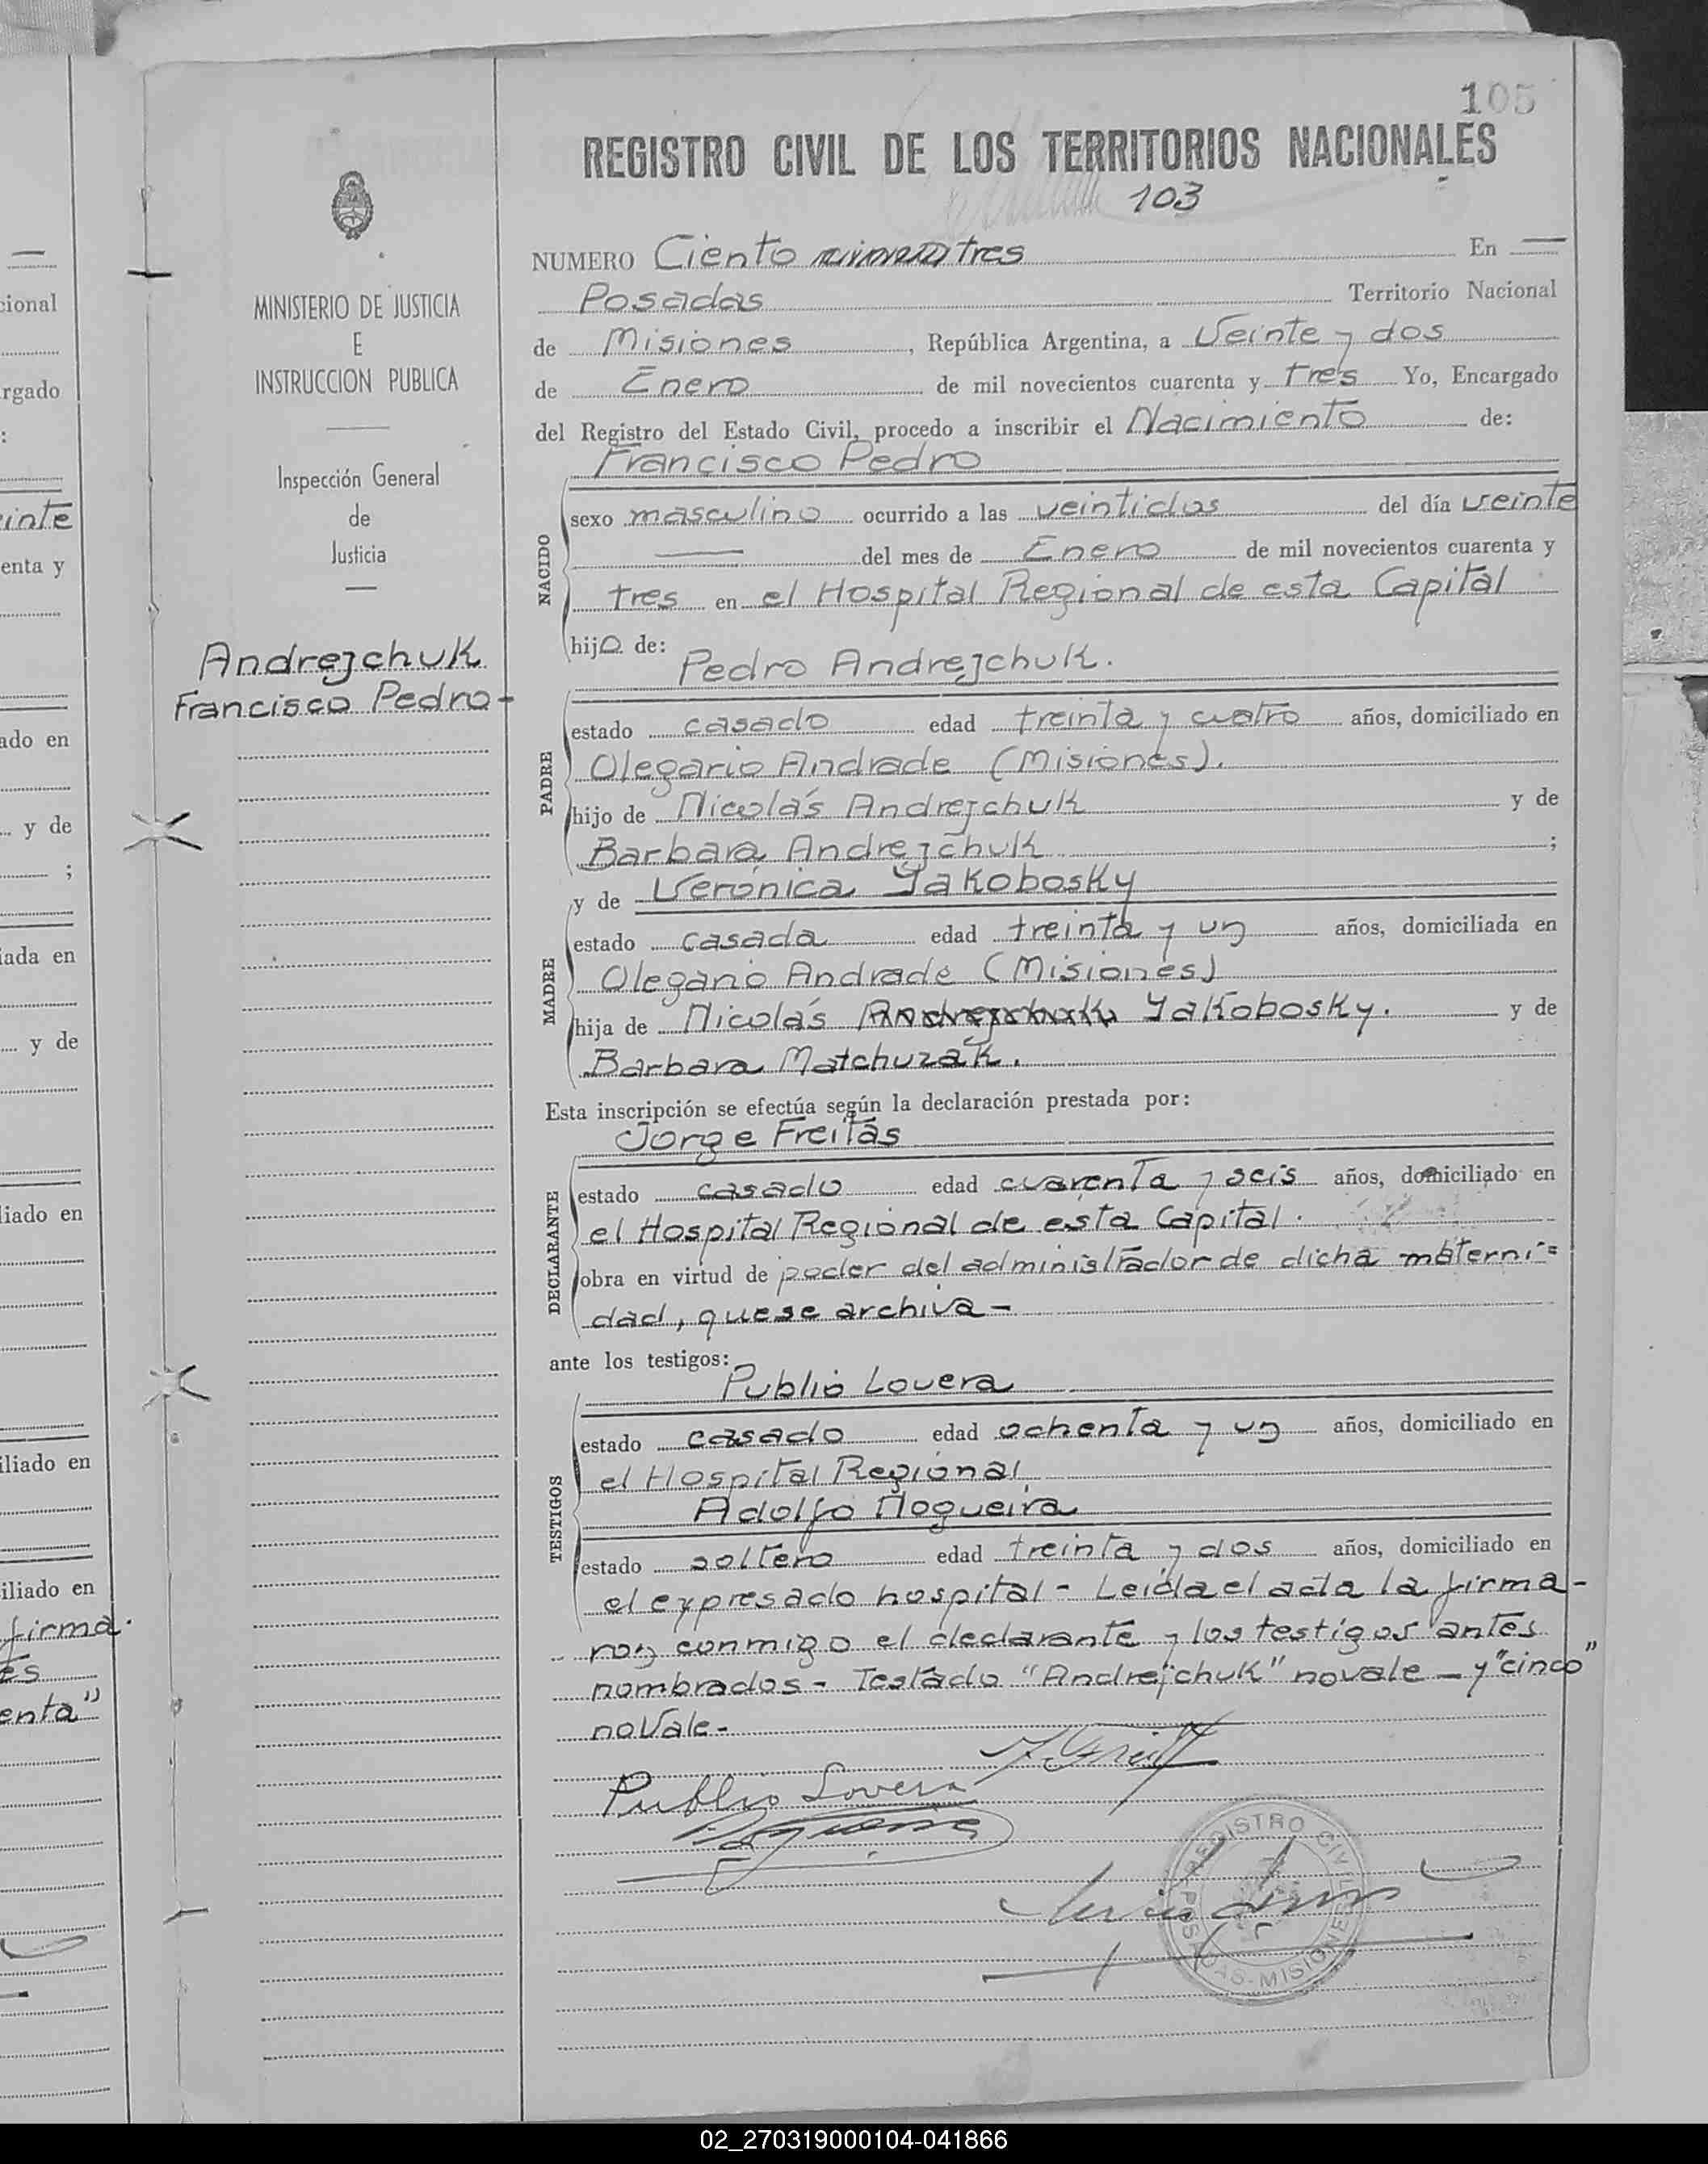 105
REGISTRO CIVIL DE LOS TERRITORIOS NACIONALES
103
NUMERO Ciento tres En —
Posadas Territorio Nacional
de Misiones, República Argentina, a Veinte y dos
de Enero de mil novecientos cuarenta y tres Yo, Encargado
del Registro del Estado Civil, procedo a inscribir el Nacimiento de:
Francisco Pedro
NACIDO
sexo masculino ocurrido a las veintidos del día veinte
— del mes de Enero de mil novecientos cuarenta y
tres en el Hospital Regional de esta Capital
hijo de:
Pedro Andrejchuk.
PADRE
estado casado edad treinta y cuatro años, domiciliado en
Olegario Andrade (Misiones).
hijo de Nicolás Andrejchuk y de
Barbara Andrejchuk ;
y de Verónica Yakobosky
MADRE
estado casada edad treinta y un años, domiciliada en
Olegario Andrade (Misiones)
hija de Nicolás Andrejchuk Yakobosky. y de
Barbara Matchuzak.
Esta inscripción se efectúa según la declaración prestada por:
Jorge Freitas
DECLARANTE
estado casado edad cuarenta y seis años, domiciliado en
el Hospital Regional de esta Capital.
obra en virtud de poder del administrador de dicha materni=
dad, que se archiva -
ante los testigos:
Publio Lovera
TESTIGOS
estado casado edad ochenta y un años, domiciliado en
el Hospital Regional
Adolfo Nogueira
estado soltero edad treinta y dos años, domiciliado en
el expresado hospital - Leida el acta la firma-
ron conmigo el declarante y los testigos antes
nombrados - Testado "Andrejchuk" no vale - y "cinco"
no Vale -
Publio Lovera
REGISTRO CIVIL
POSADAS-MISIONES
MINISTERIO DE JUSTICIA
E
INSTRUCCION PUBLICA
Inspección General
de
Justicia
Andrejchuk
Francisco Pedro -
cional
rgado
:
inte
enta y
ado en
y de
;
iada en
y de
liado en
iliado en
iliado en
firma.
es
enta"
02_270319000104-041866